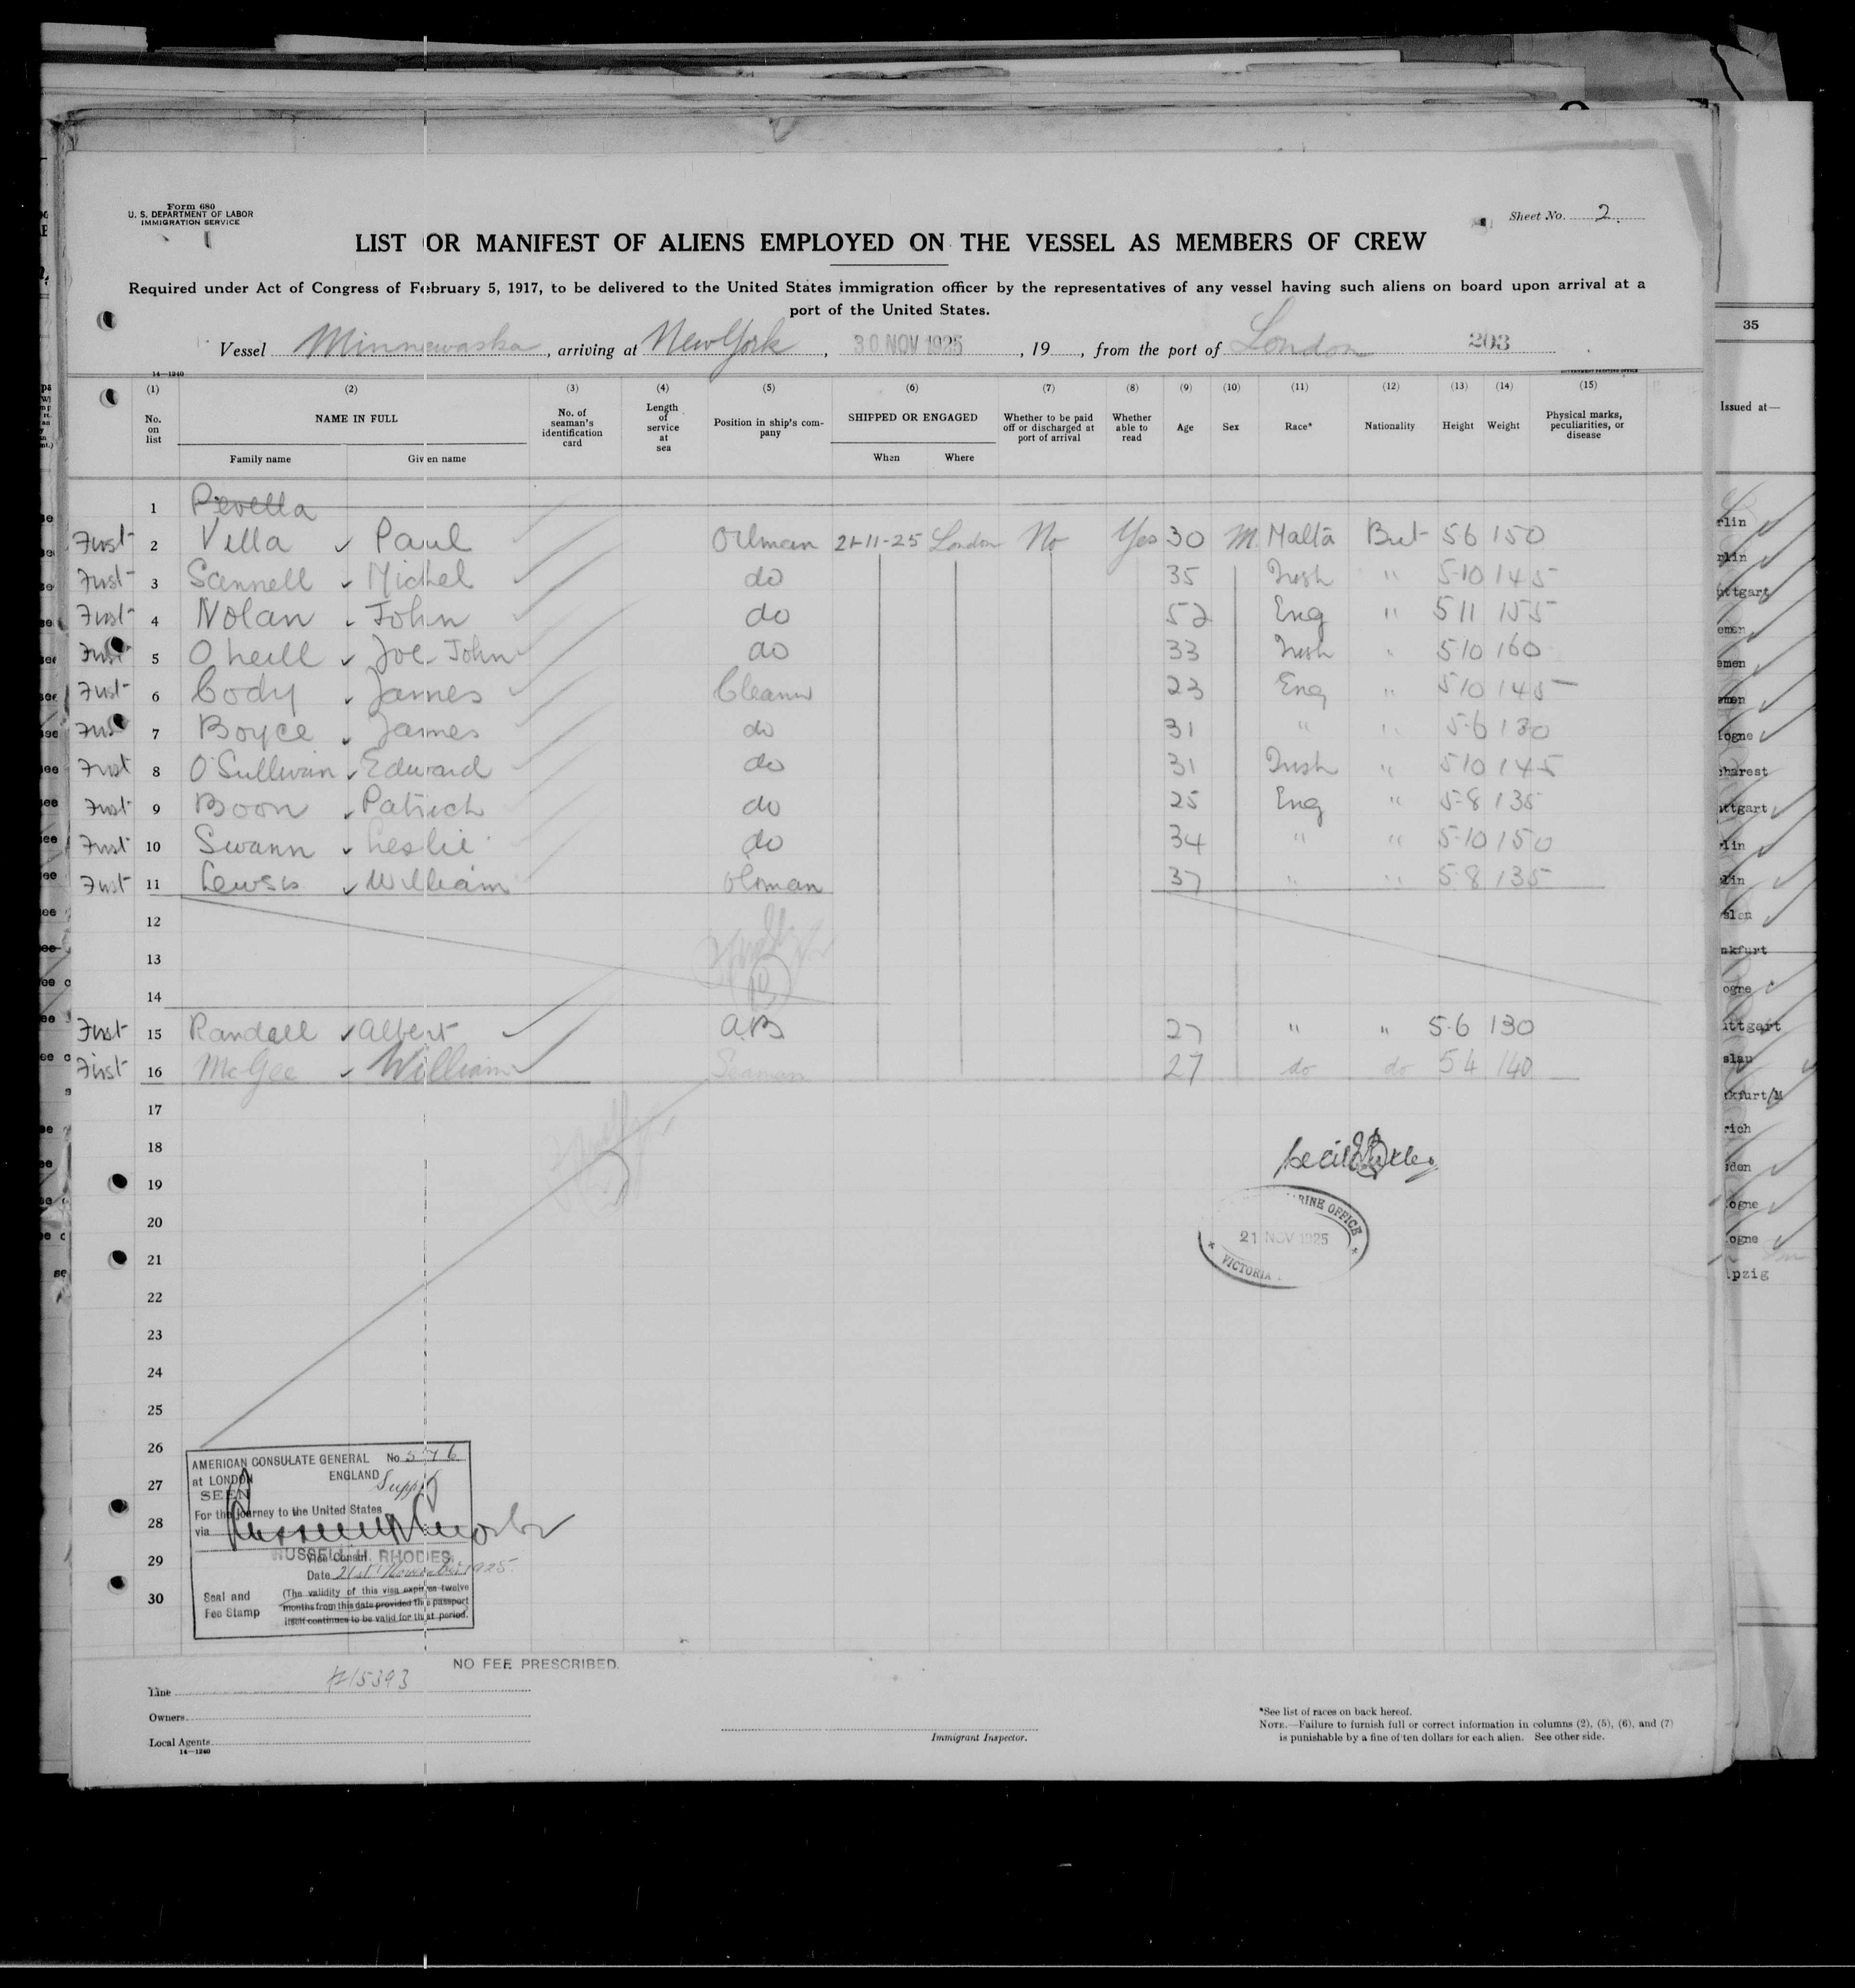 Form 680
U. S. DEPARTMENT OF LABOR
IMMIGRATION SERVICE
Sheet No. 2.
LIST OR MANIFEST OF ALIENS EMPLOYED ON THE VESSEL AS MEMBERS OF CREW
Required under Act of Congress of February 5, 1917, to be delivered to the United States immigration officer by the representatives of any vessel having such aliens on board upon arrival at a
port of the United States.
Vessel Minnewaska, arriving at New York, 30 NOV 1925, 19, from the port of London 203
14—1240 GOVERNMENT PRINTING OFFICE
(1) (2) (3) (4) (5) (6) (7) (8) (9) (10) (11) (12) (13) (14) (15)
No. on list NAME IN FULL No. of seaman's identification card Length of service at sea Position in ship's company SHIPPED OR ENGAGED Whether to be paid off or discharged at port of arrival Whether able to read Age Sex Race* Nationality Height Weight Physical marks, peculiarities, or disease
Family name Given name When Where
1
First 2 Vella ✓ Paul Oilman 21-11-25 London No Yes 30 M Malta Brit 56 150
First 3 Scannell ✓ Michel do 35 Irish " 5-10 145
First 4 Nolan ✓ John do 52 Eng " 5 11 155
First 5 O'neill ✓ Joe John do 33 Irish " 5-10 160
First 6 Cody ✓ James Cleaner 23 Eng " 5-10 145
First 7 Boyce ✓ James do 31 " " 5-6 130
First 8 O'Sullivan ✓ Edward do 31 Irish " 5-10 145
First 9 Boon ✓ Patrick do 25 Eng " 5-8 135
First 10 Swann ✓ Leslie do 34 " " 5-10 150
First 11 Lewsis ✓ William 37 " " 5-8 135
12
13
14
First 15 Randall ✓ Albert AB 27 " " 5-6 130
First 16 McGee ✓ William Seaman 27 do do 54 140
17
18
19
20
21
22
23
24
25
26
27
28
29
30
RINE OFFICE
21 NOV 1925
VICTORIA
AMERICAN CONSULATE GENERAL No 576
at LONDON ENGLAND
SEEN
For the journey to the United States
via
RUSSELL M. RHODIES
Vice Consul
Date 21st November 1925.
Seal and
Fee Stamp
(The validity of this visa expires twelve
months from this date provided the passport
itself continues to be valid for that period.
NO FEE PRESCRIBED.
Line #15393
Owners
Local Agents
14—1240
Immigrant Inspector.
*See list of races on back hereof.
NOTE.—Failure to furnish full or correct information in columns (2), (5), (6), and (7)
is punishable by a fine of ten dollars for each alien. See other side.
35
Issued at—